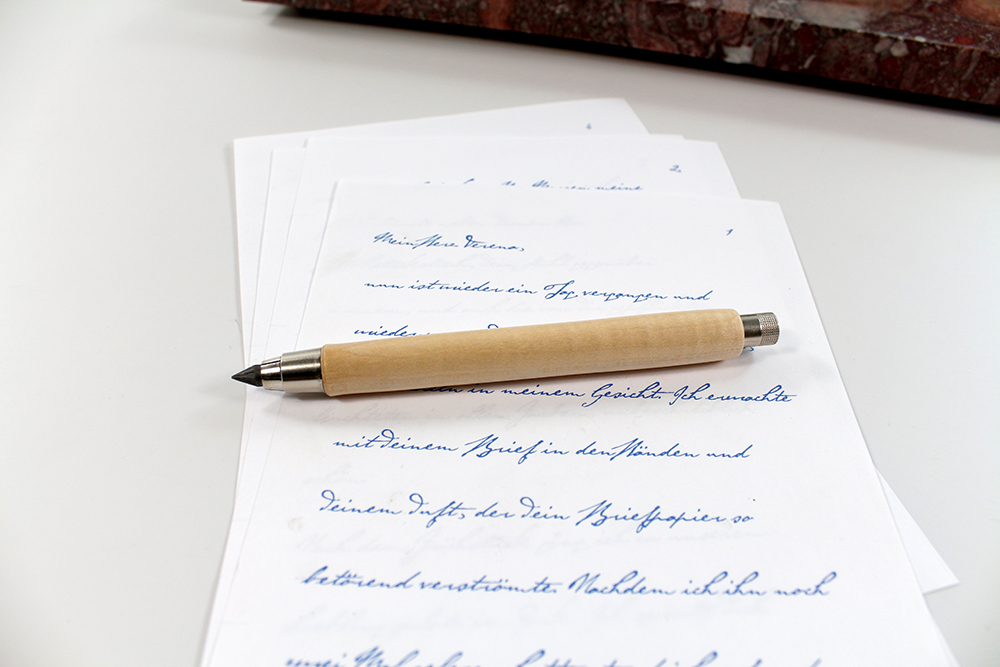 2.
meine
1
Meine Verena,
nun ist wieder ein Tag vergangen und
wieder
in meinem Gesicht. Ich erwachte
mit deinem Brief in den Händen und
deinem Duft, der dein Briefpapier so
betörend verströmte. Nachdem ich ihn noch
zwei Mal